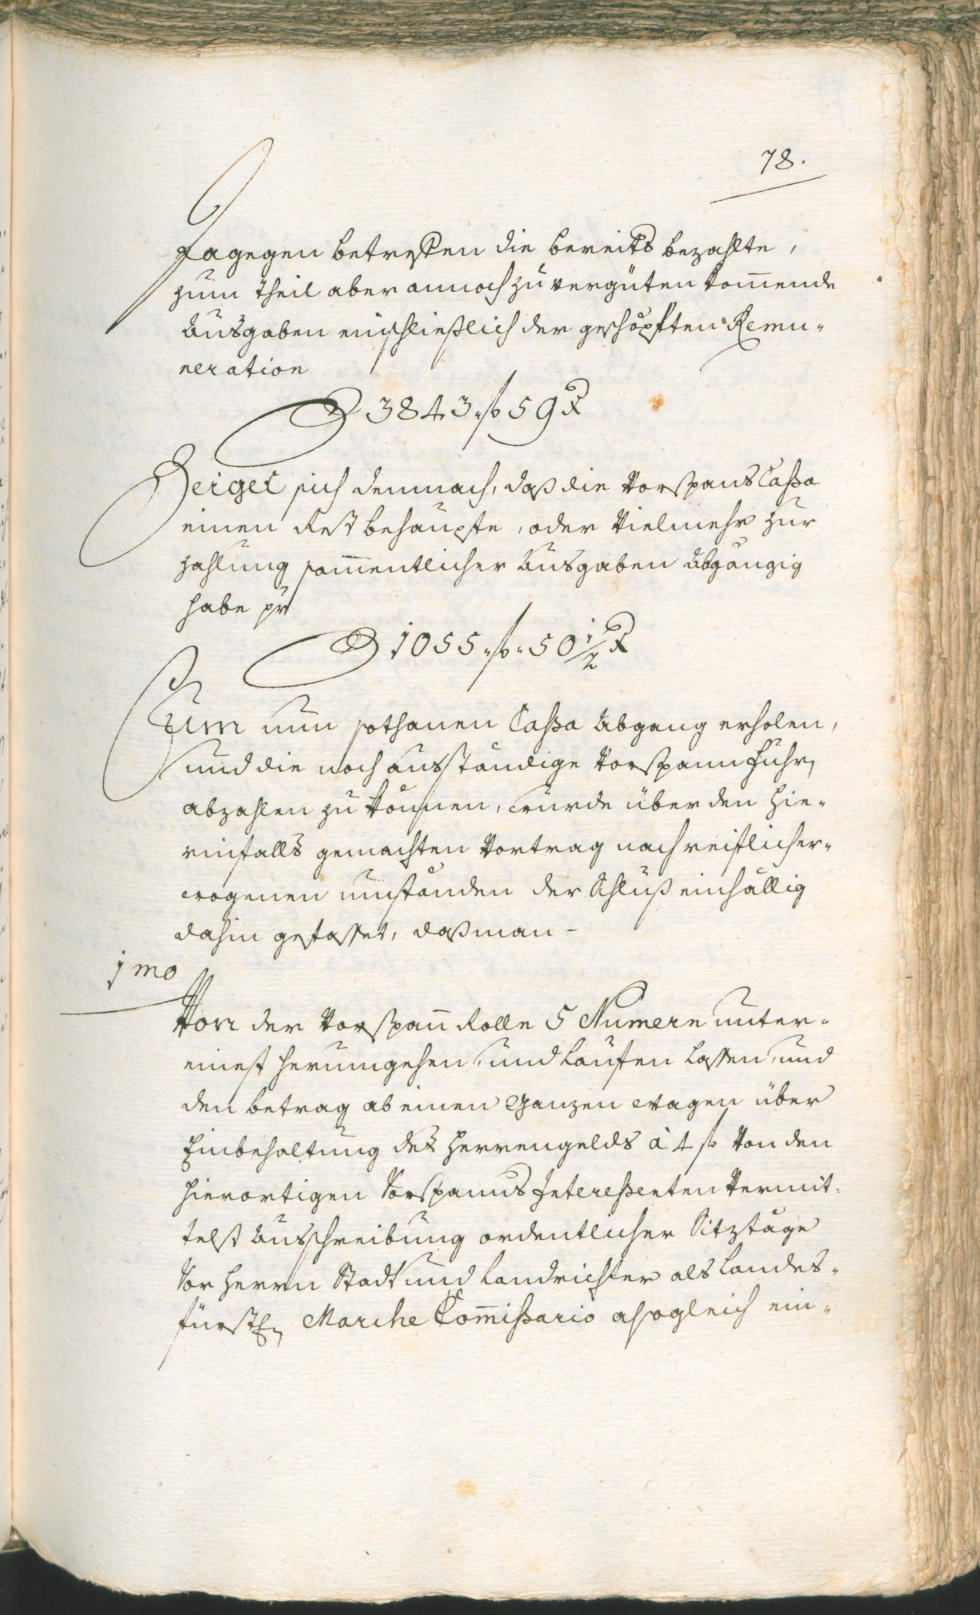 78.
Dagegen betreffen die bereits bezahlte,
zum theil aber annoch zu vergüten kom̄ende
Ausgaben einschließlich der geschöpften Remu-
neration
3843 f 59 x
Zeiget sich demnach, daß die Vorspans Cassa
einen Rest behaupte, oder vielmehr zur
zahlung sam̄entlicher Ausgaben abgängig
habe pr
1055 f 50 1/2 x
Um nun sothanen Cassa Abgang erholen,
und die noch ausständige Vorspann fuhrn
abzahlen zu können, wurde über den hie-
rinfalls gemachten Vortrag nach reiflicher-
wogenen umständen der Schluß einhällig
dahin gefasset, daß man -
1mo
Von der Vorspan̄ Rolle 5 Numern unter-
einest herumgehen, und laufen lassen, und
den betrag ab einen ganzen wagen über
Einbehaltung des Herrengelds à 4 f von den
hierortigen Vorspanns Interessenten vermit-
telst Ausschreibung ordentlicher Sitztäge
vor Herrn Stadt und Landrichter als Landes-
fürstln Marche Com̄issario alsogleich ein-